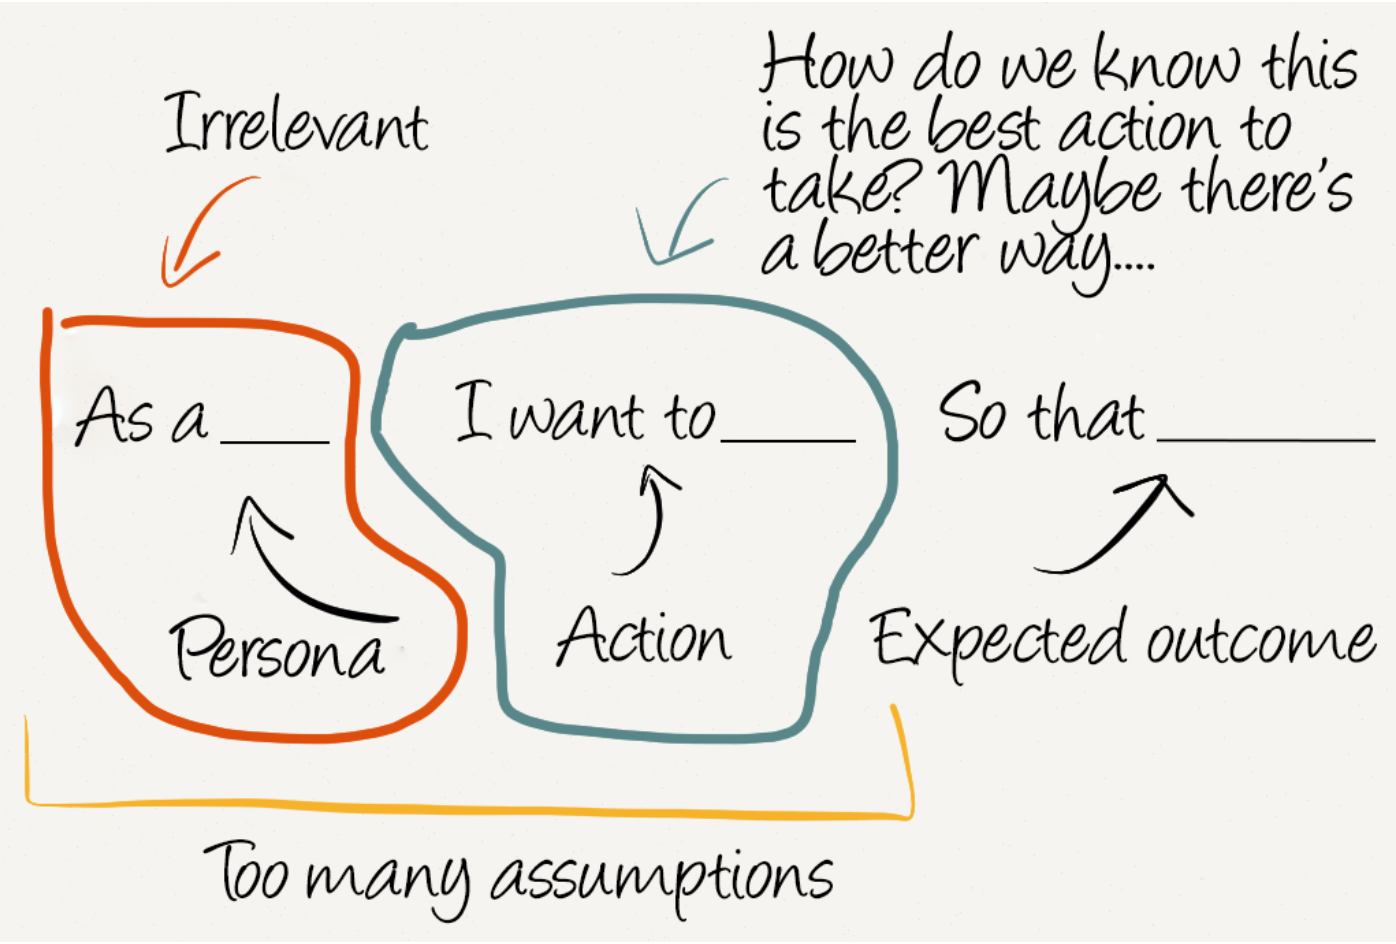 Irrelevant
How do we know this
is the best action to
take? Maybe there's
a better way....
As a ____ I want to ____ So that ______
Persona
Action
Expected outcome
Too many assumptions